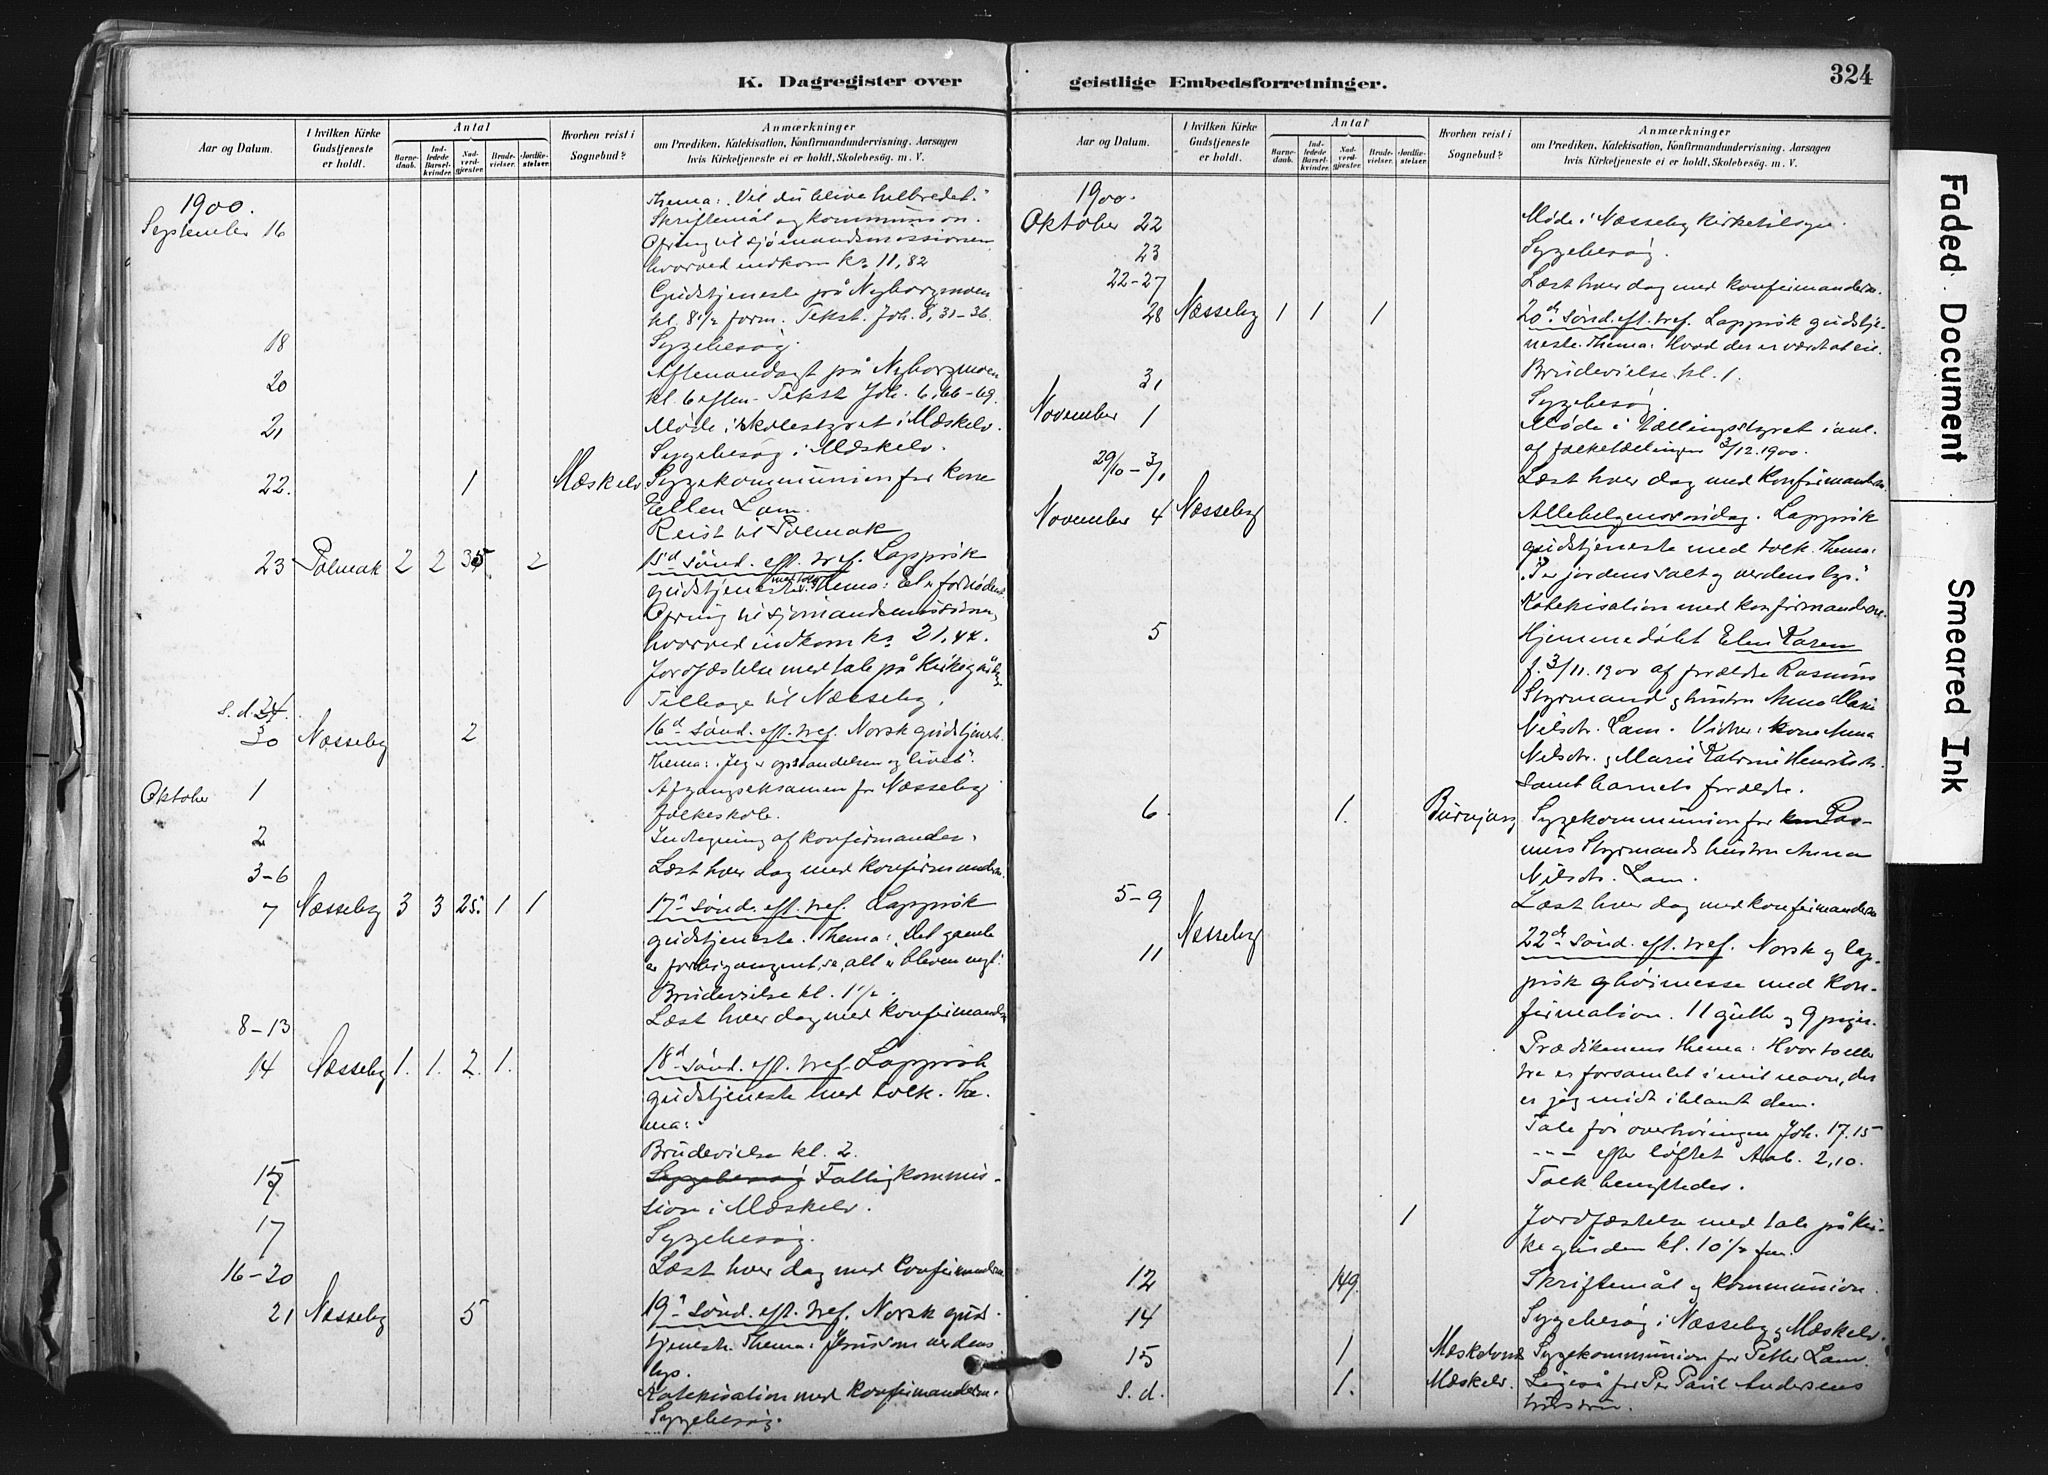 K. Dagregister over
Aar og Datum.
I hvilken Kirke Gudstjeneste er holdt.
Antal
Barnedaab.
Indledede Barselkvinder.
Nadverdgjester.
Brudevielser.
Jordfæstelser.
Hvorhen reist i Sognebud?
Anmærkninger
om Prædiken, Katekisation, Konfirmandundervisning. Aarsagen
hvis Kirketjeneste ei er holdt, Skolebesög. m. V.
1900.
September 16
Thema: "Vil du blive helbredet."
Skriftemål og kommunion.
Ofring til sjömandsmissionen
hvorved indkom kr. 11,82
Gudstjeneste på Nyborgmoen
kl. 8½ form. Tekst. Joh. 8,31-36.
18 Sygebesøg.
20 Aftenandagt på Nyborgmoen
kl. 6 eftm. Tekst Joh. 6,66-69.
21 Møde i skolestyret i Mæskelv.
Sygebesøg i Mæskelv.
22. 1 Mæskelv Sygekommunion for kone
Ellen Lam.
Reist til Polmak
23 Polmak 2 2 35 2 15d sønd. eft. tref. Lappisk
gudstjeneste med tolk. Thema: Et er fornødent
Ofring til sjömandsmissionen,
hvorved indkom kr. 21,44.
Jordfæstelse med tale på kirkegården
s. d. 24. Tilbage til Næsseby.
30 Næsseby 2 16d sønd. eft. tref. Norsk gudstjenest.
Thema: "Jeg er opstandelsen og livet".
Oktober 1 Afgangseksamen for Næsseby
folkeskole.
2 Indtegning af konfirmander.
3-6 Læst hver dag med konfirmandern.
7 Næsseby 3 3 25. 1 1 17d sønd. eft. tref. Lappisk
gudstjeneste. Thema: "Det gamle
er forbigangent, se, alt er bleven nyt".
Brudevielse kl. 1½.
8-13 Læst hver dag med konfirmandern
14 Næsseby 1. 1. 2. 1. 18d sønd. eft. tref. Lappisk
gudstjeneste med tolk. The-
ma:
Brudevielse kl. 2.
15 Sygebesøg Fattigkommis-
sion i Mæskelv.
17 Sygebesøg.
16-20 Læst hver dag med konfirmandern
21 Næsseby 5 19d sønd. eft. tref. Norsk gud-
tjeneste. Thema: Jesus som verdens
lys.
Katekisation med konfirmandern.
Sygebesøg.
geistlige Embedsforretninger.
324
Aar og Datum.
I hvilken Kirke Gudstjeneste er holdt.
Antal
Barnedaab.
Indledede Barselkvinder.
Nadverdgjester.
Brudevielser.
Jordfæstelser.
Hvorhen reist i Sognebud?
Anmærkninger
om Prædiken, Katekisation, Konfirmandundervisning. Aarsagen
hvis Kirketjeneste ei er holdt, Skolebesög. m. V.
1900.
Oktober 22 Møde i Næsseby kirketilsyn.
23 Sygebesøg.
22-27 Læst hver dag med konfirmandern.
28 Næsseby 1 1 1 20de sønd. eft. tref. Lappisk gudstje-
neste. Thema: Hvad der er værdt at eie.
Brudevielse kl. 1.
31 Sygebesøg
November 1 Møde i tællingsstyret i anl.
af folketællingen 3/12.1900.
29/10-3/11 Læst hver dag med konfirmandern.
November 4 Næsseby Allehelgensøndag. Lappisk
gudstjeneste med tolk. Thema:
"I er jordens salt og verdens lys."
Katekisation med konfirmanderne.
5 Hjemmedøbt Elen Karen
f. 3/11.1900 af forældre Rasmus
Styrmand og hustru Anna Marie
Nilsdtr. Lam. Vidner: kone Anna
Nilsdtr. og Marie Katrine Henriksdtr.
samt barnets forældre.
6. 1. Burnjarg Sygekommunion for Ras-
mus Styrmands hustru Anna
Nilsdtr. Lam.
5-9 Læst hver dag med konfirmandern
11 Næsseby 22de sønd. eft. tref. Norsk og lap-
pisk høimesse med kon-
firmation. 11 gutter og 9 piger.
Prædikenens thema: Hvor to eller
tre er forsamlet i mit navn, der
er jeg midt iblandt dem.
Tale før overhøringen Joh. 17.15
---- efter løftet Aab. 2,10.
Tolk benyttedes.
1 Jordfæstelse med tale på kir-
kegården kl. 10½ fm.
12 149. Skriftemål og kommunion.
14 Sygebesøg i Næsseby og Mæskelv.
15 1 Mæskelvnes Sygekommunion for Petter Lam.
s. d. 1. Mæskelv. Ligeså for Per Paul Andersens
hustru.
Faded Document
Smeared Ink